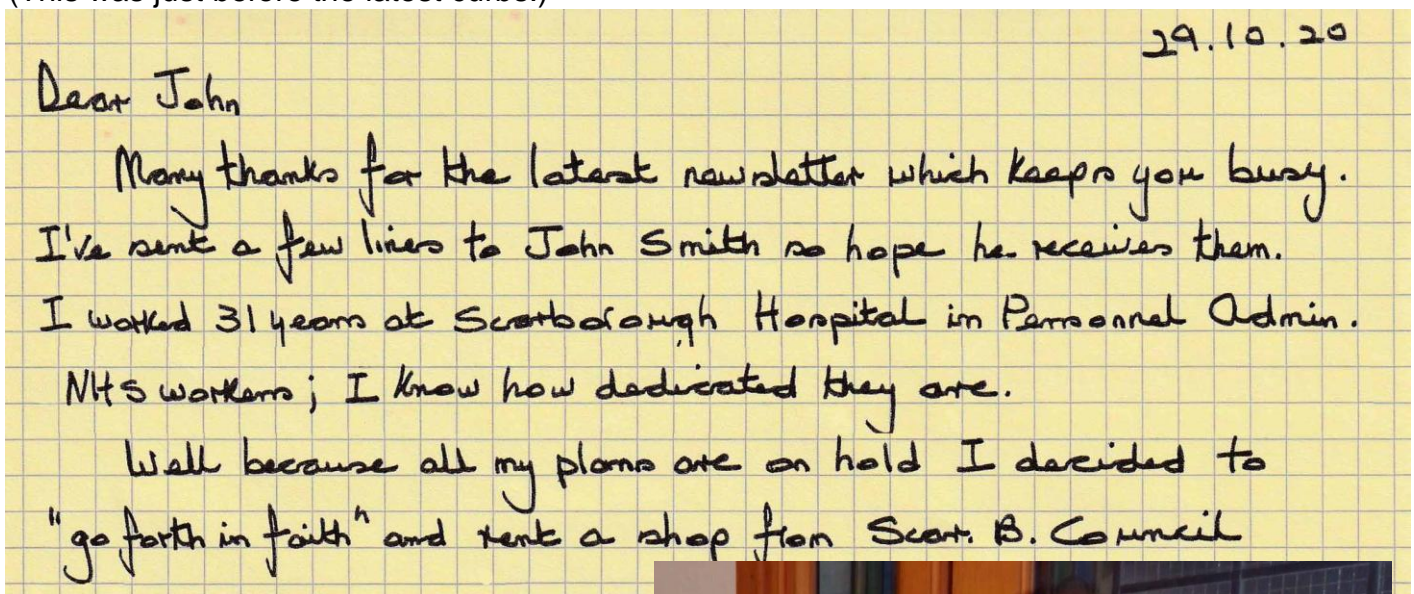 29.10.20
Dear John
Many thanks for the latest newsletter which keeps you busy.
I've sent a few lines to John Smith so hope he receives them.
I worked 31 years at Scarborough Hospital in Personnel Admin.
NHS workers; I know how dedicated they are.
Well because all my plans are on hold I decided to
"go forth in faith" and rent a shop from Scar. B. Council